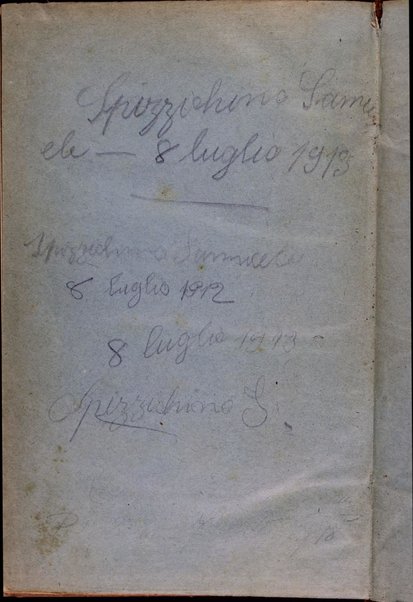 Spizzichino Samu
ele — 8 luglio 1913
Spizzichino Samuele
8 luglio 1912
8 luglio 1913
Spizzichino S.